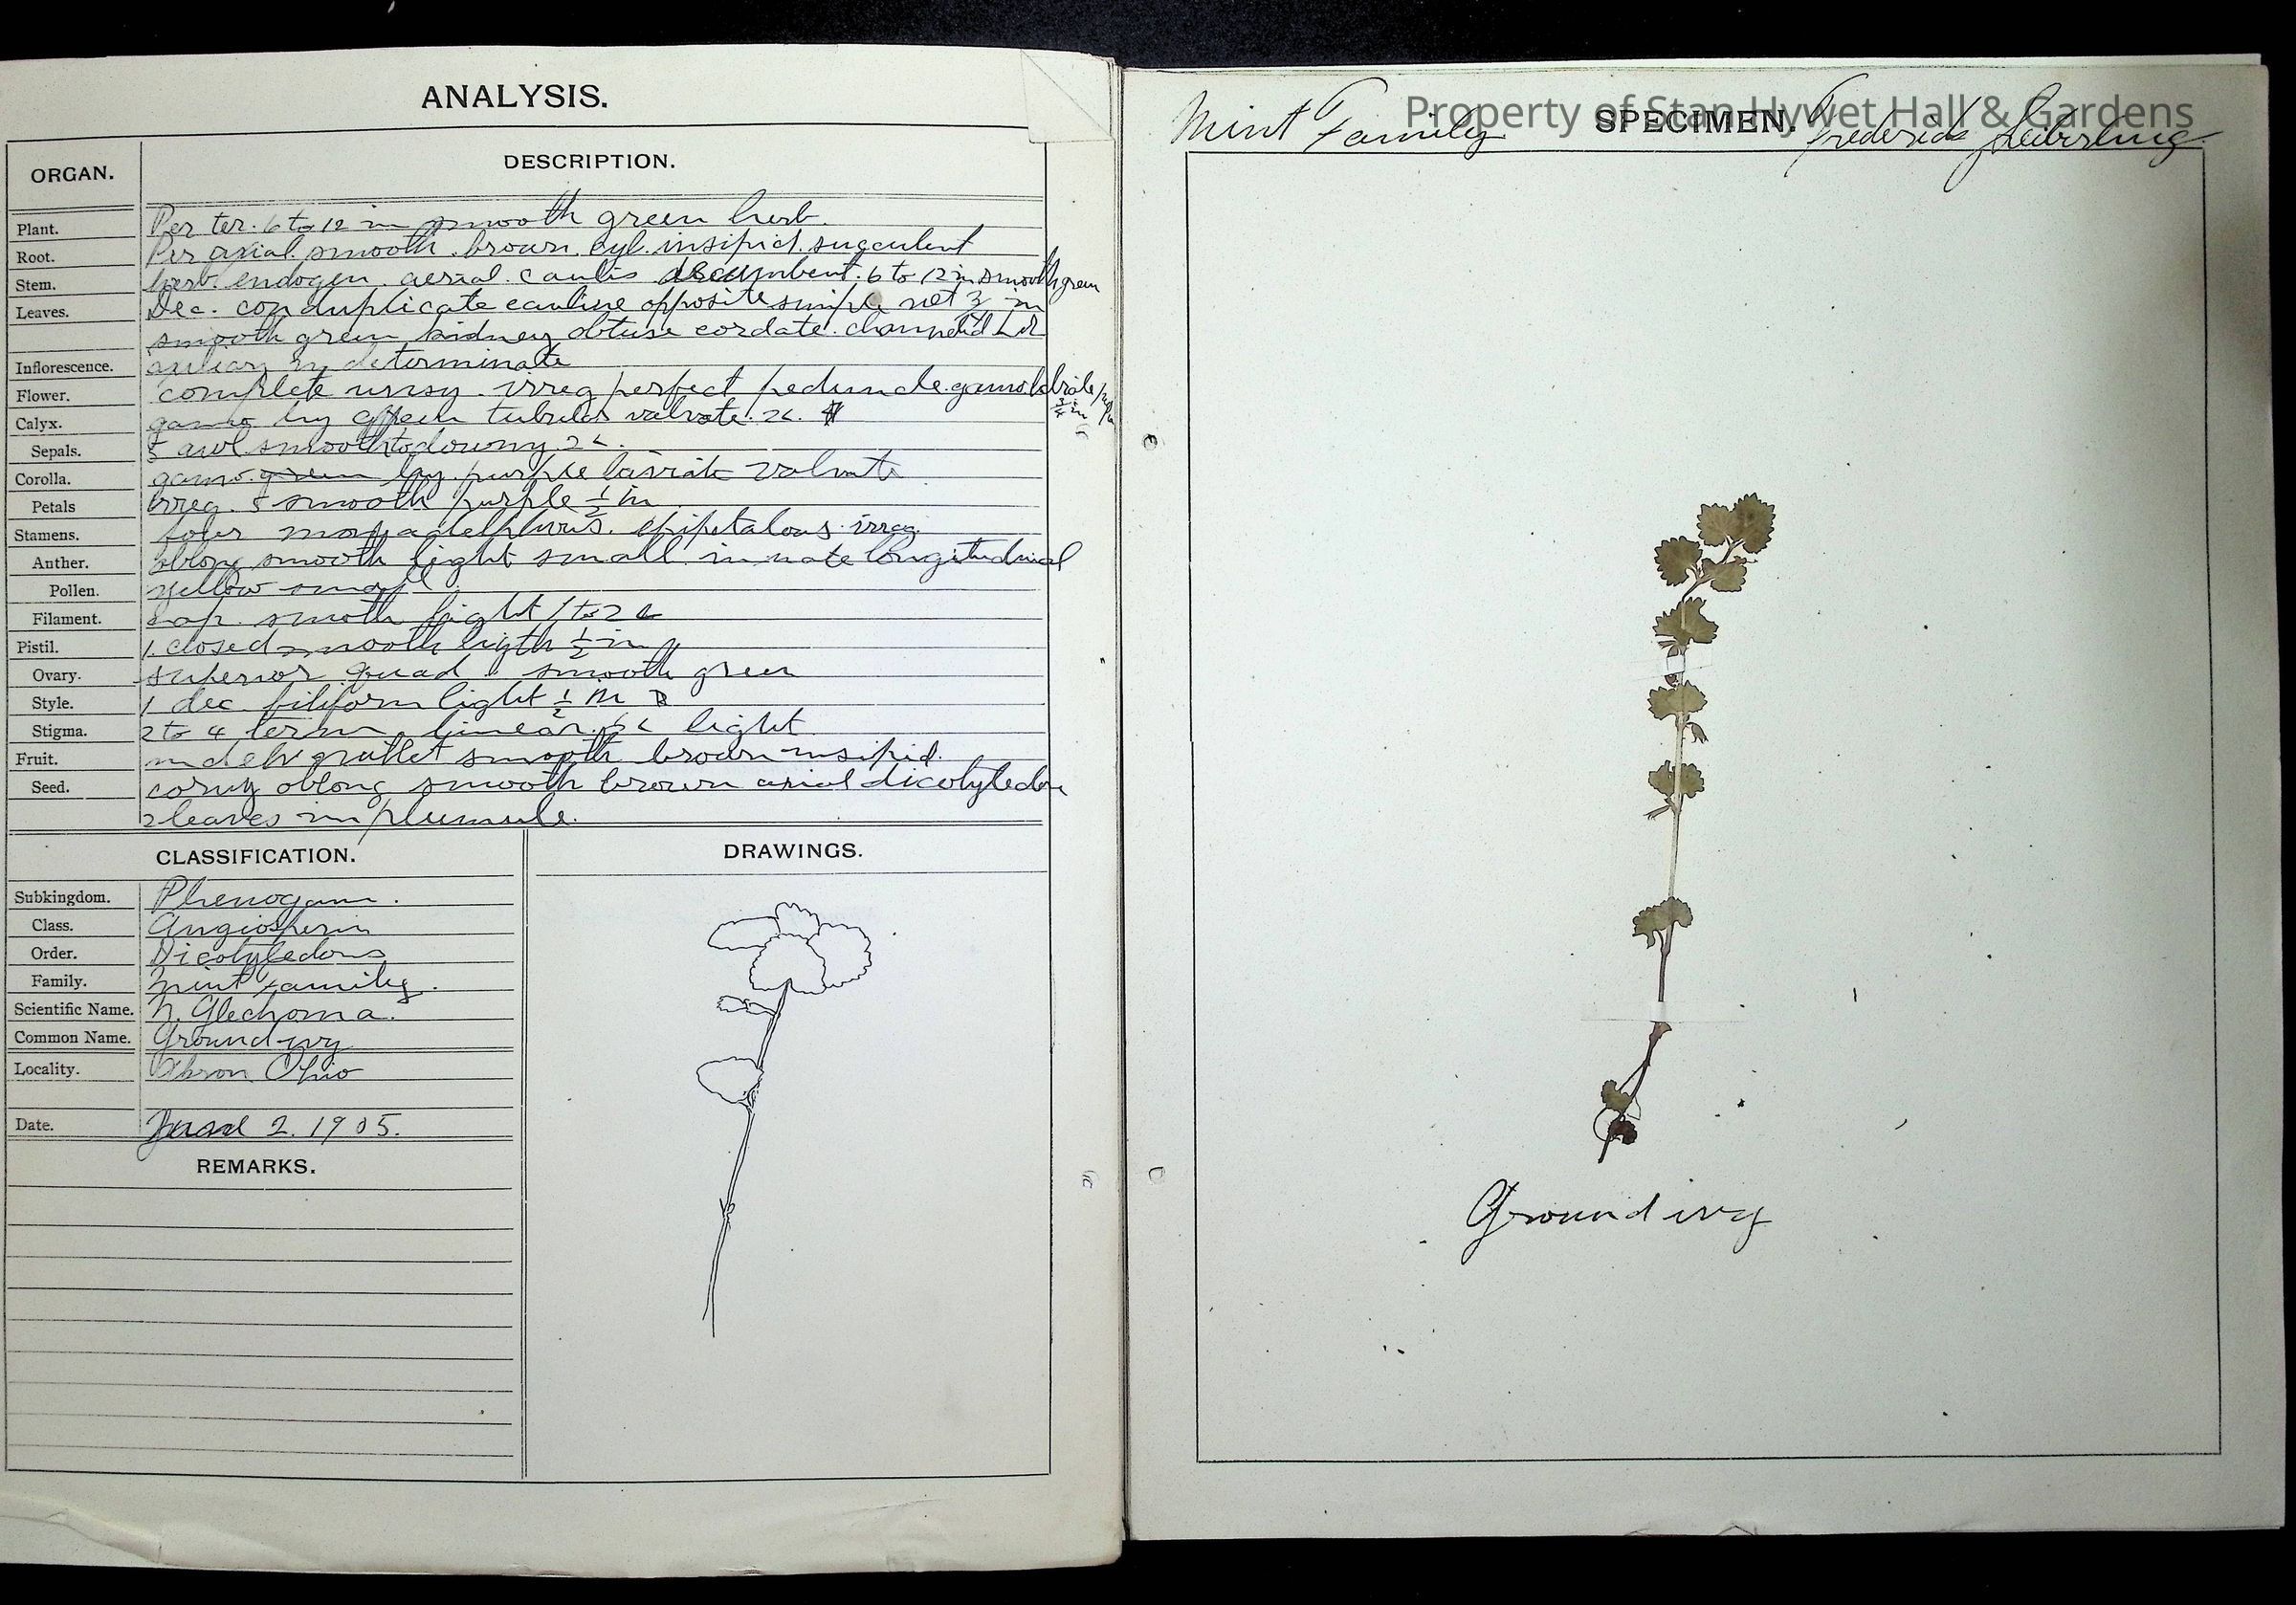 ANALYSIS.
ORGAN.
DESCRIPTION.
Plant. Per ter. 6 to 12 in smooth green herb.
Root. Per axial. smooth. brown. cyl. insipid. succulent
Stem. herb. endogen. aerial. caulis decumbent. 6 to 12 in smooth green
Leaves. Dec. conduplicate cauline opposite simple net in
smooth green kidney obtuse cordate. channeled
Inflorescence. indeterminate
Flower. complete unsy. irreg perfect peduncle.
Calyx. gamo hy green tubular valvate. 2L.
Sepals. 5 awl smooth to downy. 2L.
Corolla. gamo. green hy. purple labiate valvate
Petals irreg. 5 smooth purple 1/2 in
Stamens. epipetalous. irreg.
Anther. oblong smooth light small. innate longitudinal
Pollen. yellow small
Filament. smooth light 1 to 2L
Pistil. 1. closed smooth ligth 1/2 in
Ovary. superior quad smooth green
Style. 1 dec. filiform light 1/2 in
Stigma. 2 to 4 term. linear. light
Fruit. nutlet smooth brown insipid.
Seed. oblong smooth brown axial dicotyledon
2 leaves in plumule.
CLASSIFICATION.
Subkingdom. Phenogam.
Class. Angiosperm
Order. Dicotyledons
Family. Mint Family.
Scientific Name. N. Glechoma.
Common Name. Ground ivy
Locality. Akron Ohio
Date. 2. 1905.
REMARKS.
DRAWINGS.
Mint Family
SPECIMEN.
Frederick Seiberling
Property of Stan Hywet Hall & Gardens
Ground ivy